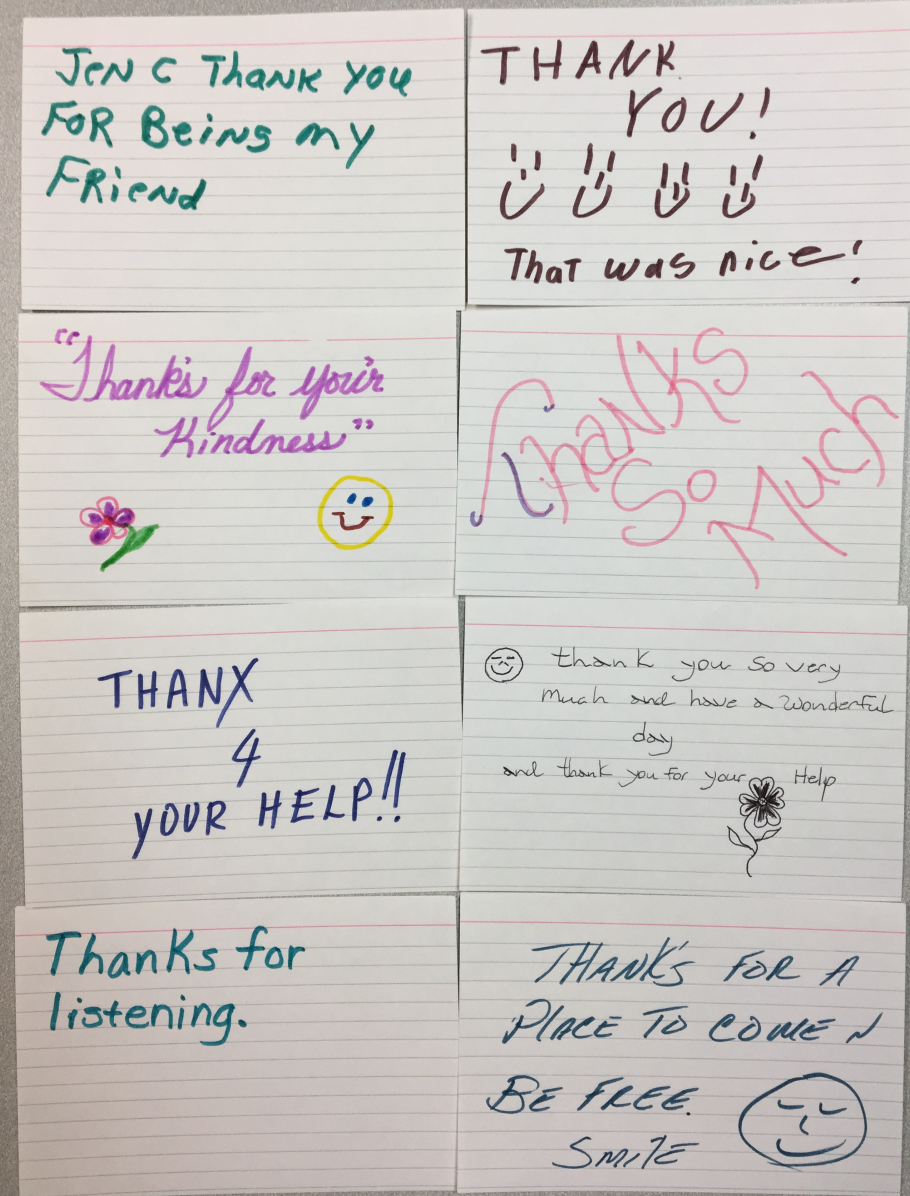 JeN C ThaNK you
FOR BeiNg my
FRiend
THANK
YOU!
That was nice!
"Thank's for your
Kindness"
ThaNKS
So
Much
THANX
4
YOUR HELP!!
thank you so very
much and have a wonderful
day
and thank you for your Help
Thanks for
listening.
THANK'S FOR A
PlACE TO COME N
BE FREE.
SMILE